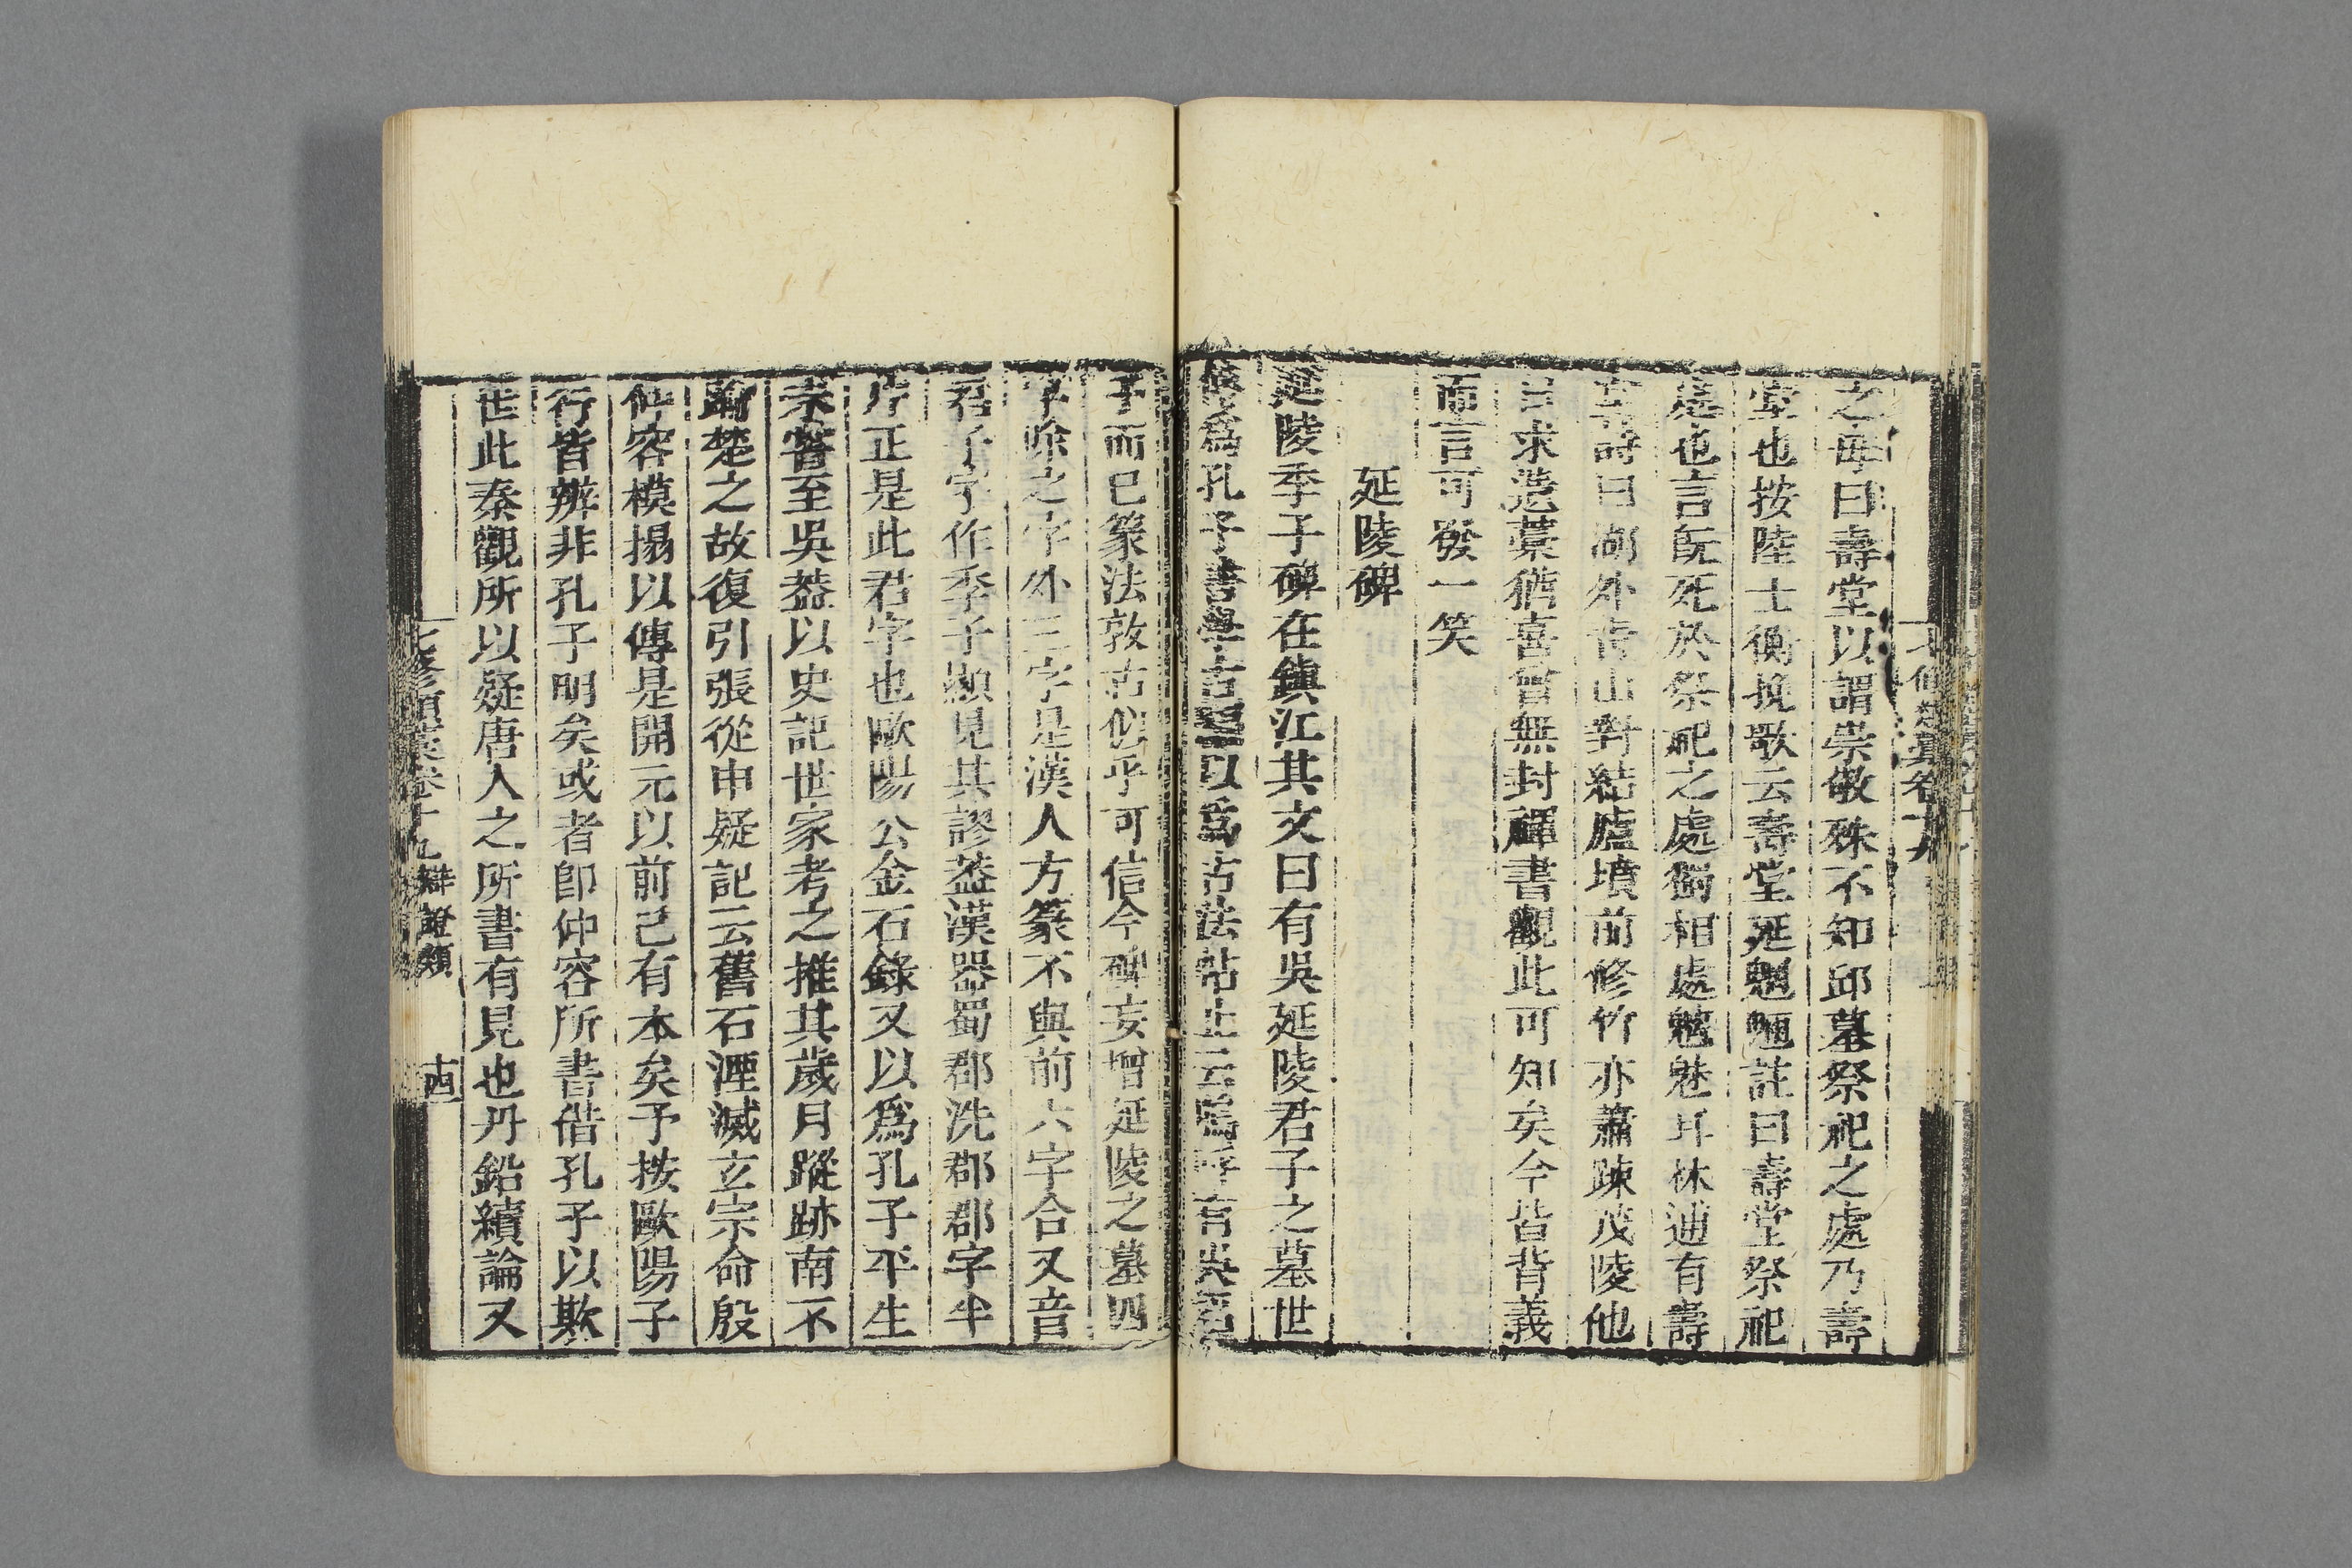 之毋曰壽堂以謂崇敬殊不知邱墓祭祀之處乃壽
堂也按陸士衡挽歌云壽堂延魍魎註曰壽堂祭祀
處也言旣死於祭祀之處獨相處魑魅耳林逋有壽
堂詩曰湖外青山對結廬墳前修竹亦蕭疎茂陵他
日求遺藁猶喜曾無封禪書觀此可知矣今皆背義
而言可發一笑
延陵碑
延陵季子碑在鎭江其文曰有吳延陵君子之墓世
傳爲孔子書學古以爲古法帖止云嗚呼有吳君
子而已篆法敦古似乎可信今碑妄增延陵之墓四
字除之字外三字是漢人方篆不與前六字合又音
君子字作季子顯見其謬葢漢器蜀郡洗郡郡字半
片正是此君字也歐陽公金石錄又以爲孔子平生
未嘗至吳葢以史記世家考之推其歲月蹤跡南不
踰楚之故復引張從申疑記云舊石湮滅玄宗命殷
仲容模搨以傳是開元以前已有本矣予按歐陽子
行皆辨非孔子明矣或者卽仲容所書借孔子以欺
世此秦觀所以疑唐人之所書有見也丹鉛續論又
七修類藁卷十九 辯證類 十四